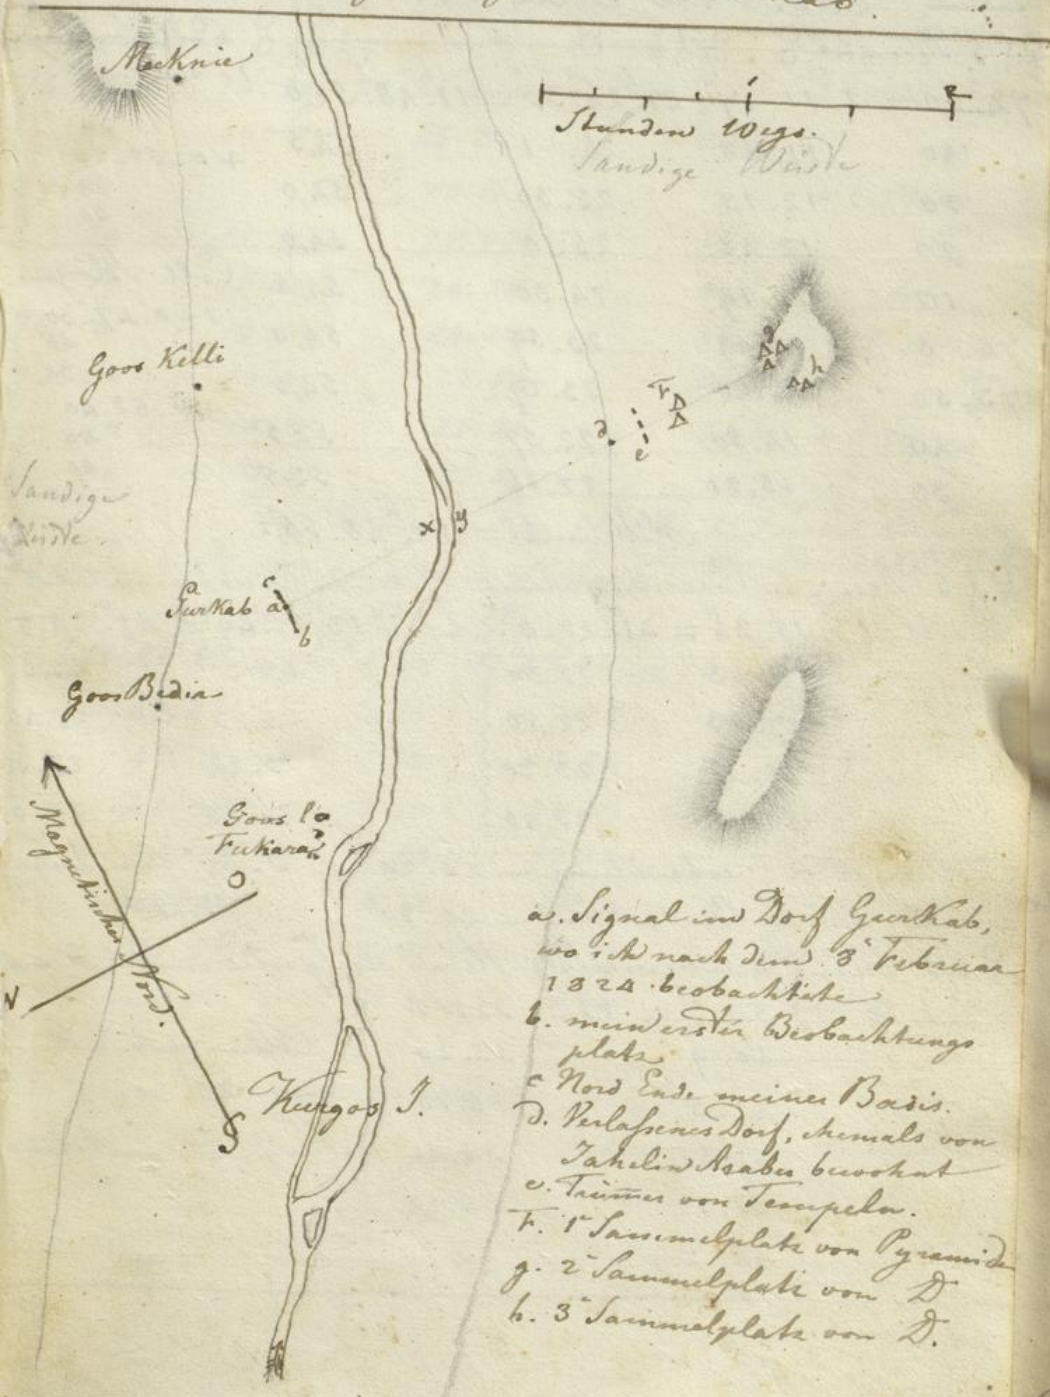 MecKnie
2
Stunden Wegs.
Sandige Wüste
g
h
Goos Kelli
F
d.
e
Sandige
Wüste.
x y
c
GurKab a
b
Goos Bedia
Magnetischer Nord.
Goos
FuKara
O
N
a. Signal im Dorf GurKab,
wo ich nach dem 3t Februar
1824 beobachtete
b. mein erster Beobachtungs
platz
S
Kurgos I.
c Nord Ende meiner Basis.
d. Verlaßenes Dorf, ehemals von
Jahelin Araber bewohnt
e. Trümer von Tempeln.
F. 1r Sammelplatz von Pyramide
g. 2r Sammelplatz von D
h. 3r Sammelplatz von D.